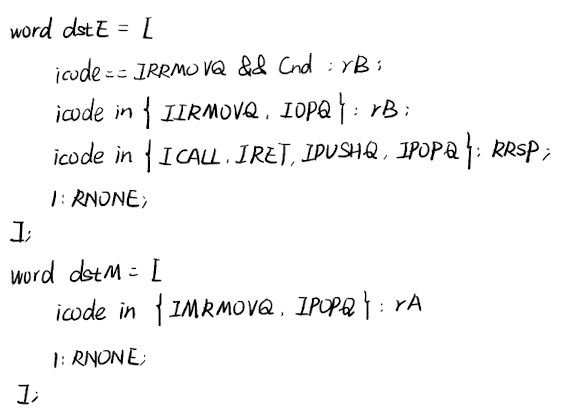 word dstE = [
icode == IRRMOVQ && Cnd : rB;
icode in { IIRMOVQ, IOPQ } : rB;
icode in { ICALL, IRET, IPUSHQ, IPOPQ } : RRSP;
1 : RNONE;
];
word dstM = [
icode in { IMRMOVQ, IPOPQ } : rA
1 : RNONE;
];